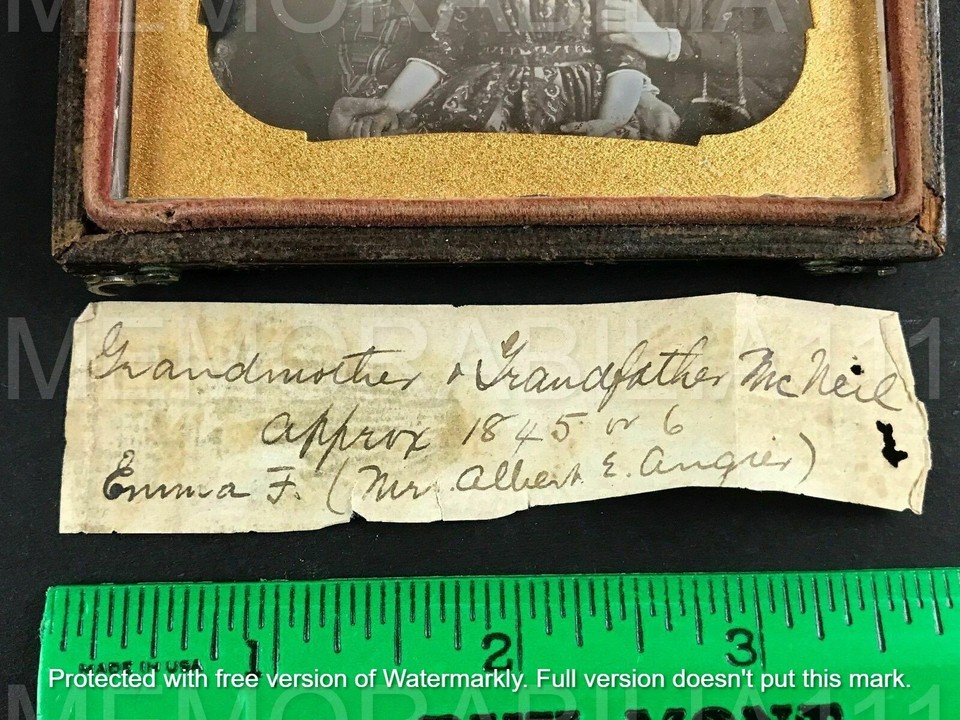 MEMORABILIA111
Grandmother & Grandfather McNeil
approx 1845 or 6
Emma F. (Mrs. Albert E. Angier)
MEMORABILIA111
1 2 3
MADE IN USA
Protected with free version of Watermarkly. Full version doesn't put this mark.
MEMORABILIA111